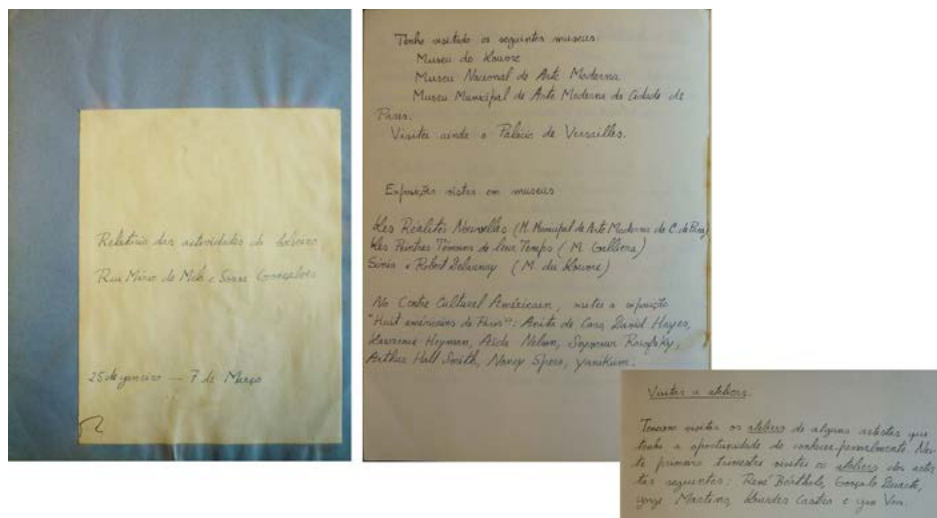 Relatório das actividades do bolseiro
Rui Mário de Melo e Sousa Gonçalves
25 de janeiro — 7 de Março
Tenho visitado os seguintes museus:
Museu do Louvre
Museu Nacional de Arte Moderna
Museu Municipal de Arte Moderna da Cidade de
Paris.
Visitei ainda o Palácio de Versailles.
Exposições vistas em museus
Les Réalités Nouvelles (M. Municipal de Arte Moderna da C. de Paris)
Les Peintres Témoins de leur Temps (M. Galliera)
Sónia e Robert Delaunay (M. du Louvre)
No Centre Culturel Américain, visitei a exposição
"Huit américains de Paris": Anita de Caro, David Hayes,
Lawrence Heyman, Aida Nelson, Seymour Rosofsky,
Arthur Hall Smith, Nancy Spero, Yanikum.
Visitas a ateliers.
Tenciono visitar os ateliers de alguns artistas que
tenho a oportunidade de conhecer pessoalmente. Nes-
te primeiro trimestre visitei os ateliers dos artis-
tas seguintes: René Bèrtholo, Gonçalo Duarte,
Jorge Martins, Lourdes Castro e Jan Voss.